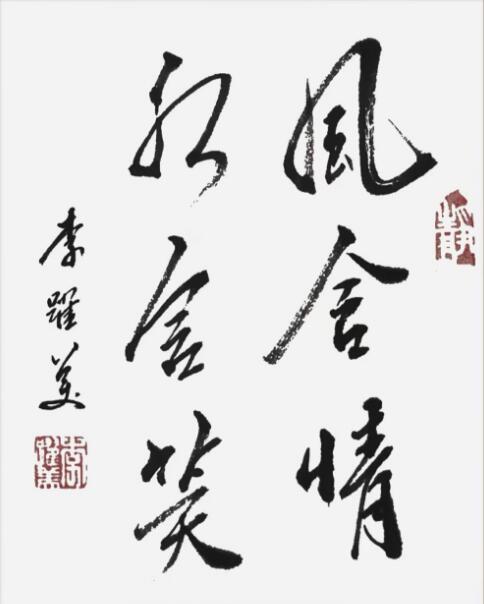 風含情
水含笑
李躍美